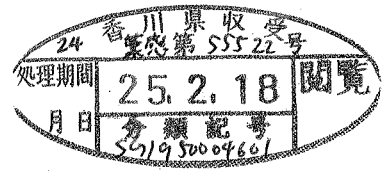 香川県収受
24 薬感第55522号
処理期間
25.2.18
閲覧
月 日
分類記号
S419S0004601